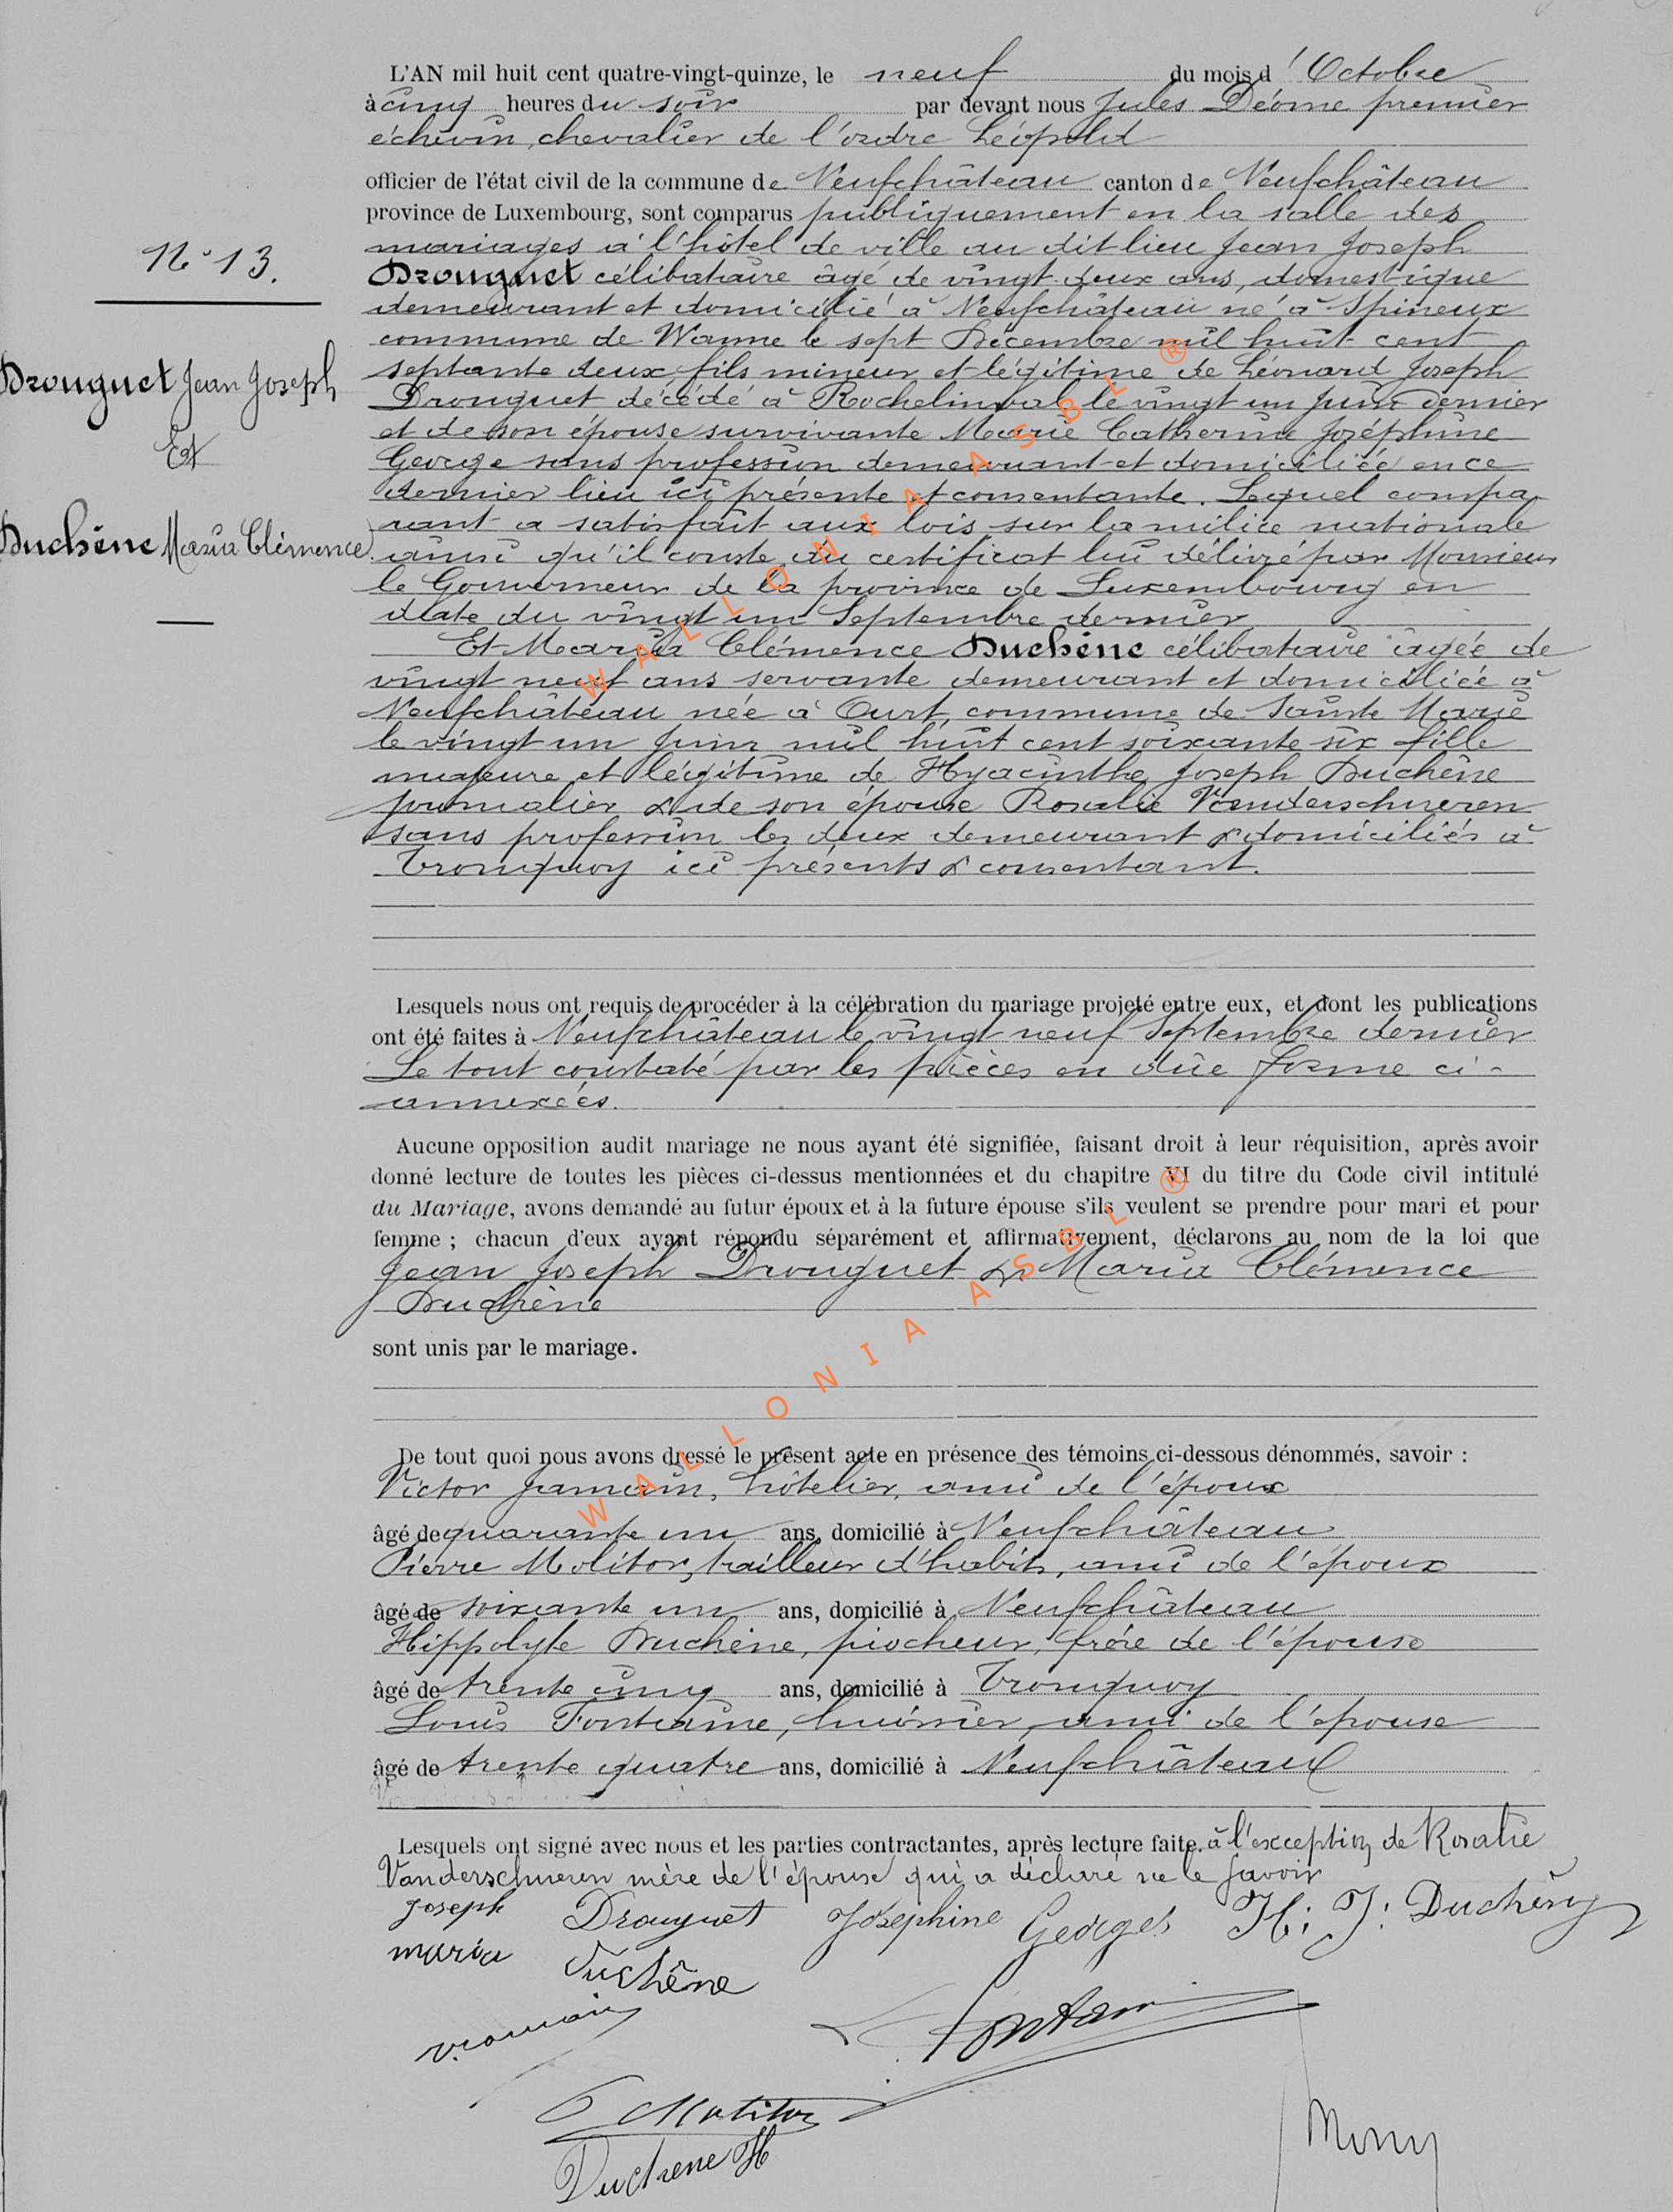 L'AN mil huit cent quatre-vingt-quinze, le neuf du mois d'Octobre
à cinq heures du soir par devant nous Jules Déome premier
échevin, chevalier de l'ordre Léopold
officier de l'état civil de la commune de Neufchâteau canton de Neufchâteau
province de Luxembourg, sont comparus publiquement en la salle des
mariages à l'hôtel de ville au dit lieu Jean Joseph
N° 13.
Drouguet célibataire âgé de vingt deux ans, domestique
demeurant et domicilié à Neufchâteau né à Spineux
commune de Wanne le sept Décembre mil huit cent
septante deux fils mineur et légitime de Léonard Joseph
Drouguet Jean Joseph
Drouguet décédé à Rochelinval le vingt un Juin dernier
et de son épouse survivante Marie Catherine Joséphine
Et
George sans profession demeurant et domiciliée en ce
dernier lieu ici présente et consentante. Lequel compa-
rant a satisfait aux lois sur la milice nationale
Duchêne Maria Clémence
ainsi qu'il conste du certificat lui délivré par Monsieur
le Gouverneur de la province de Luxembourg en
date du vingt un Septembre dernier
Et Maria Clémence Duchêne célibataire âgée de
vingt neuf ans servante demeurant et domiciliée à
Neufchâteau née à Ourt, commune de Sainte Marie
le vingt un Juin mil huit cent soixante six fille
majeure et légitime de Hyacinthe Joseph Duchêne
journalier & de son épouse Rosalie Vanderschueren
sans profession les deux demeurant & domiciliés à
Tronquoy ici présents & consentant.
Lesquels nous ont requis de procéder à la célébration du mariage projeté entre eux, et dont les publications
ont été faites à Neufchâteau le vingt neuf Septembre dernier
Le tout constaté par les pièces en dûe forme ci-
annexées.
Aucune opposition audit mariage ne nous ayant été signifiée, faisant droit à leur réquisition, après avoir
donné lecture de toutes les pièces ci-dessus mentionnées et du chapitre VI du titre du Code civil intitulé
du Mariage, avons demandé au futur époux et à la future épouse s'ils veulent se prendre pour mari et pour
femme ; chacun d'eux ayant répondu séparément et affirmativement, déclarons au nom de la loi que
Jean Joseph Drouguet & Maria Clémence
Duchêne
sont unis par le mariage.
De tout quoi nous avons dressé le présent acte en présence des témoins ci-dessous dénommés, savoir :
Victor Jamain, hôtelier, ami de l'époux
âgé de quarante un ans, domicilié à Neufchâteau
Pierre Molitor, tailleur d'habits, ami de l'époux
âgé de soixante un ans, domicilié à Neufchâteau
Hippolyte Duchêne, piocheur, frére de l'épouse
âgé de trente cinq ans, domicilié à Tronquoy
Louis Fontaine, huissier, ami de l'épouse
âgé de trente quatre ans, domicilié à Neufchâteau
Lesquels ont signé avec nous et les parties contractantes, après lecture faite. à l'exception de Rosalie
Vanderschueren mère de l'épouse qui a déclaré ne le savoir
Joseph Drouguet Joséphine Georges H: J: Duchêne
maria Duchêne
L Fontain
P Molitor
Duchene H
WALLONIA ASBL ®
WALLONIA ASBL ®